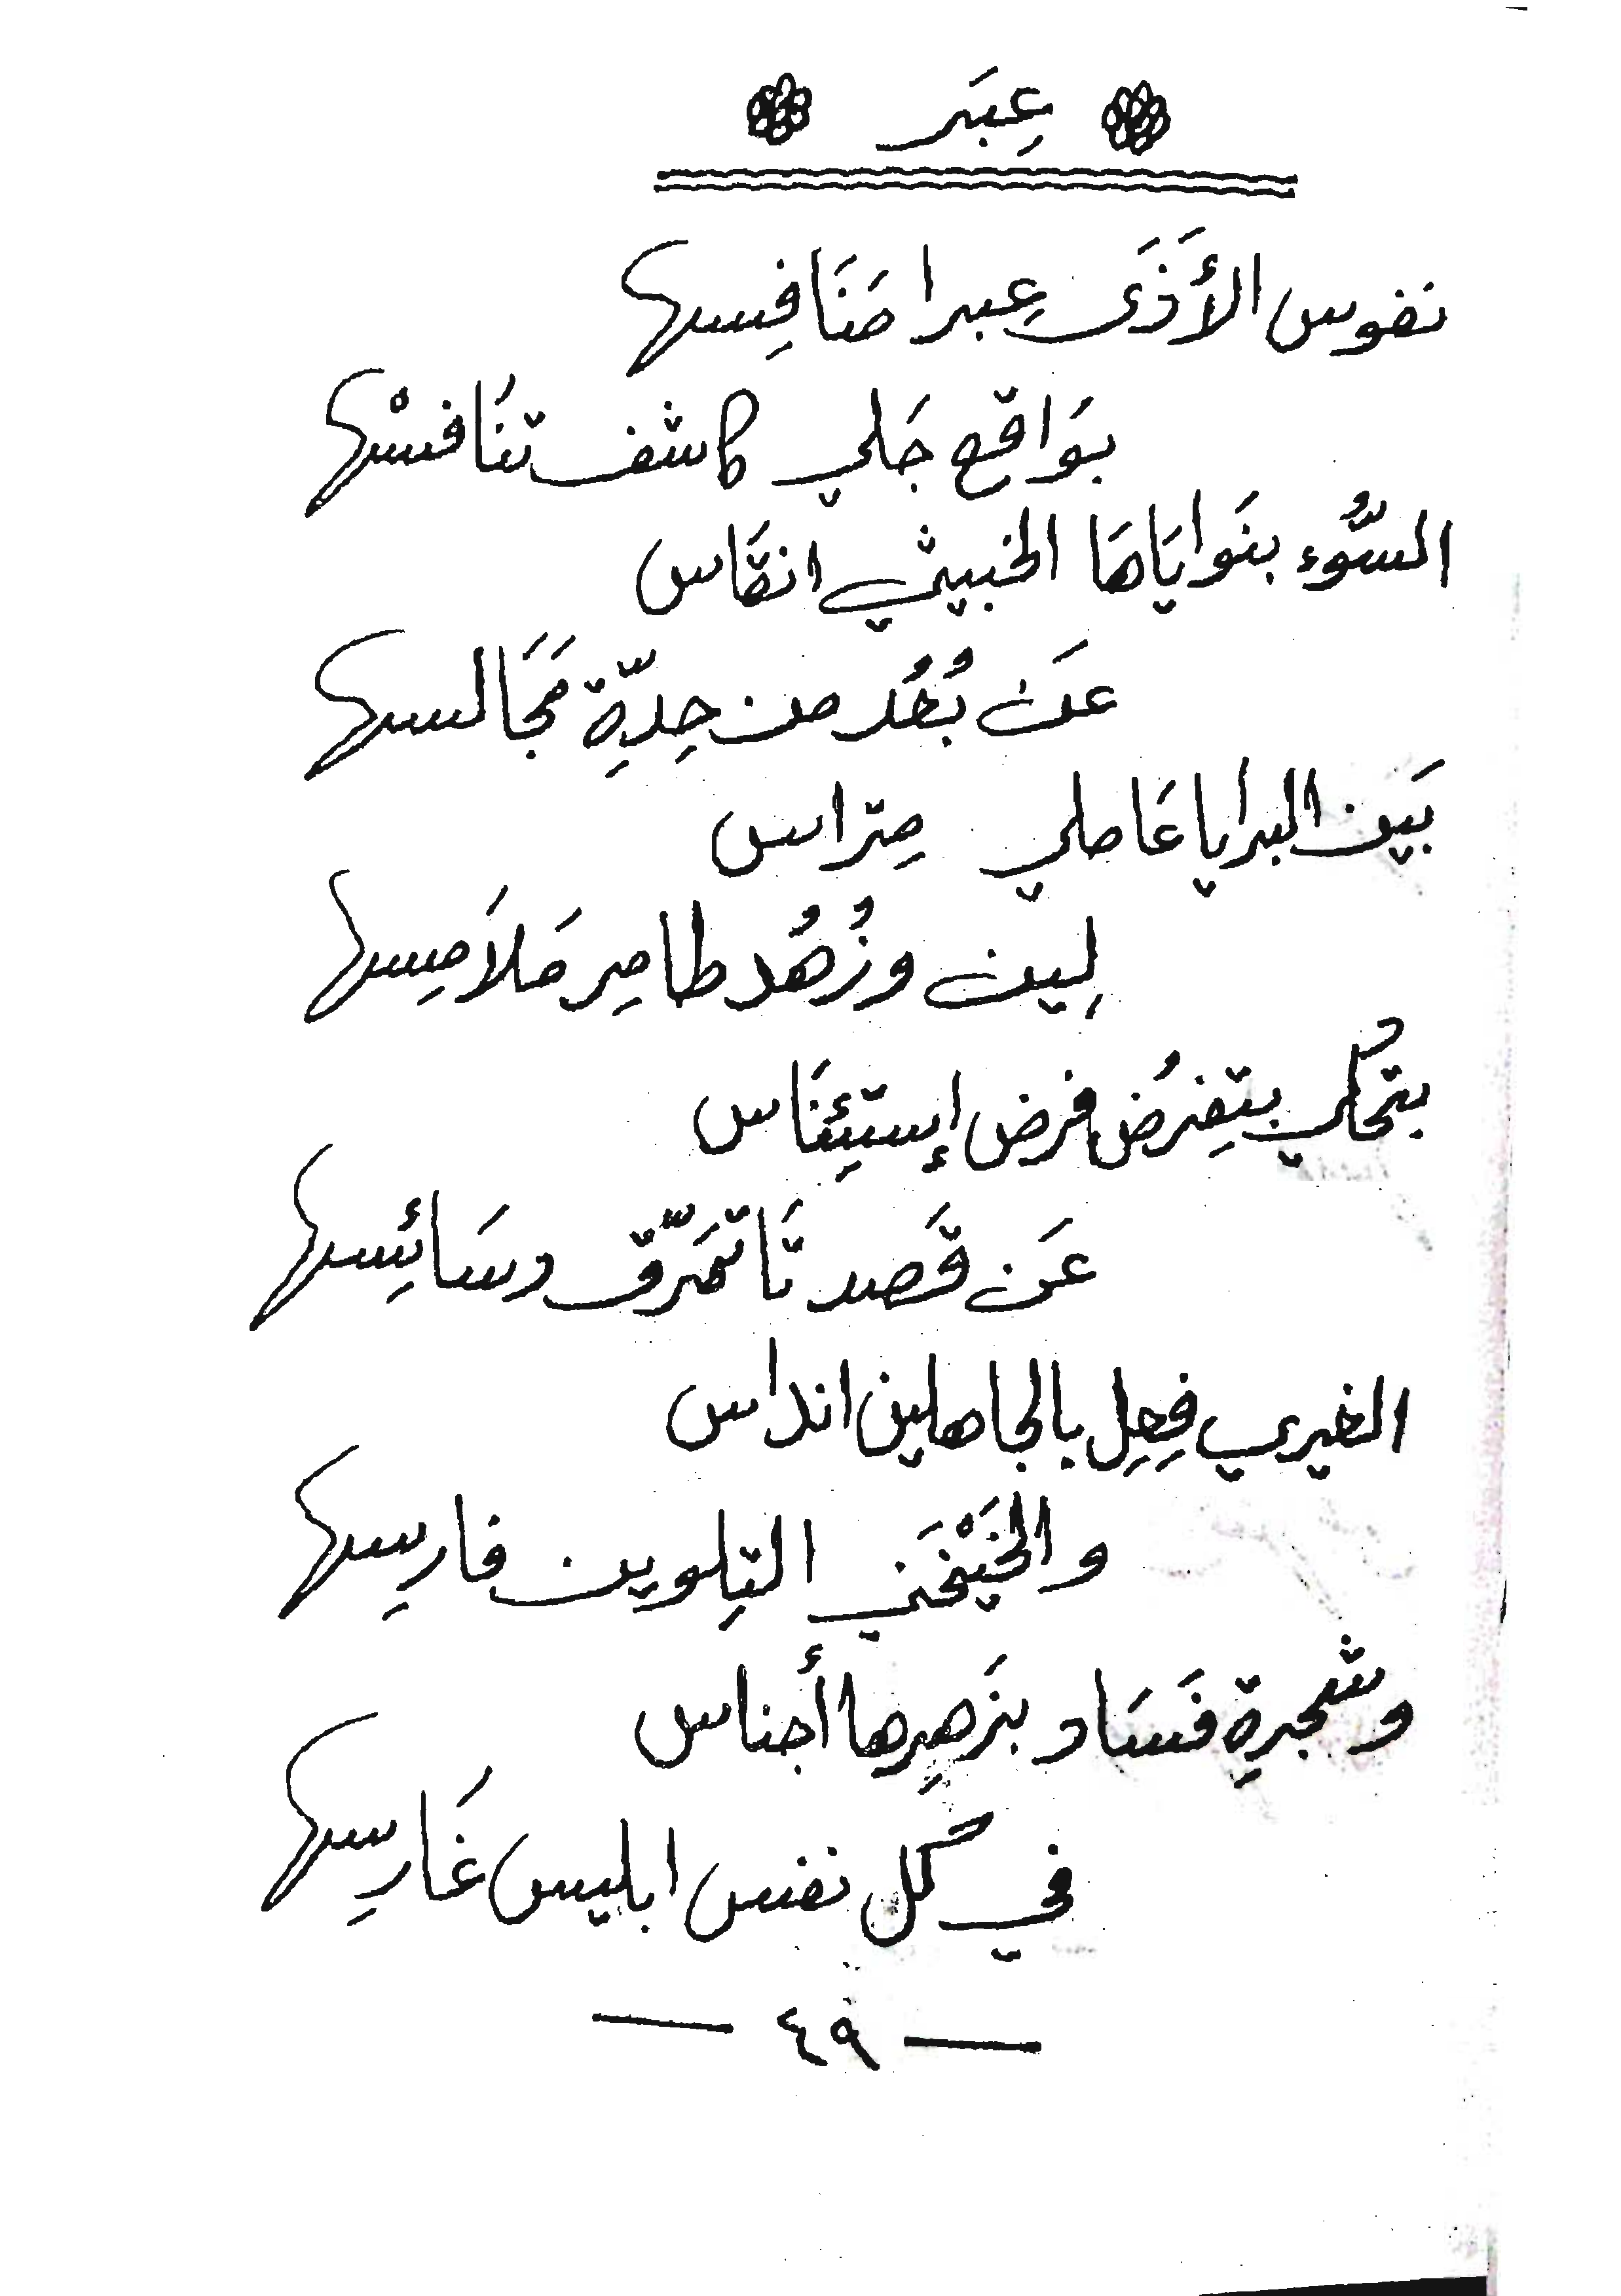 عِبَر
نفوس الأَذَى عِبرا مَنَافِسها
بوَاقع جَلي كاشف تنَافسْها
السُّوء بنَواياهَا الخبيثي انقَاس
عَن بُعُد من حِدّةِ مَجَالسها
بَين البرايا عَاملي مِتراس
لِين وزُهُد طامِر مَلاَمِسها
بتحُكي بتِفرُض فرض إستِئنَاس
عَن قَصد تَا تمَرّق دسَائِسها
الغيري فِعِل بالجاهلين انداس
والخَيْخَني التِلوين فارِسها
وشجرةِ فَسَاد بزَهِرها أجناس
في كَل نفس ابليس غَارِسها
— ٤٩ —